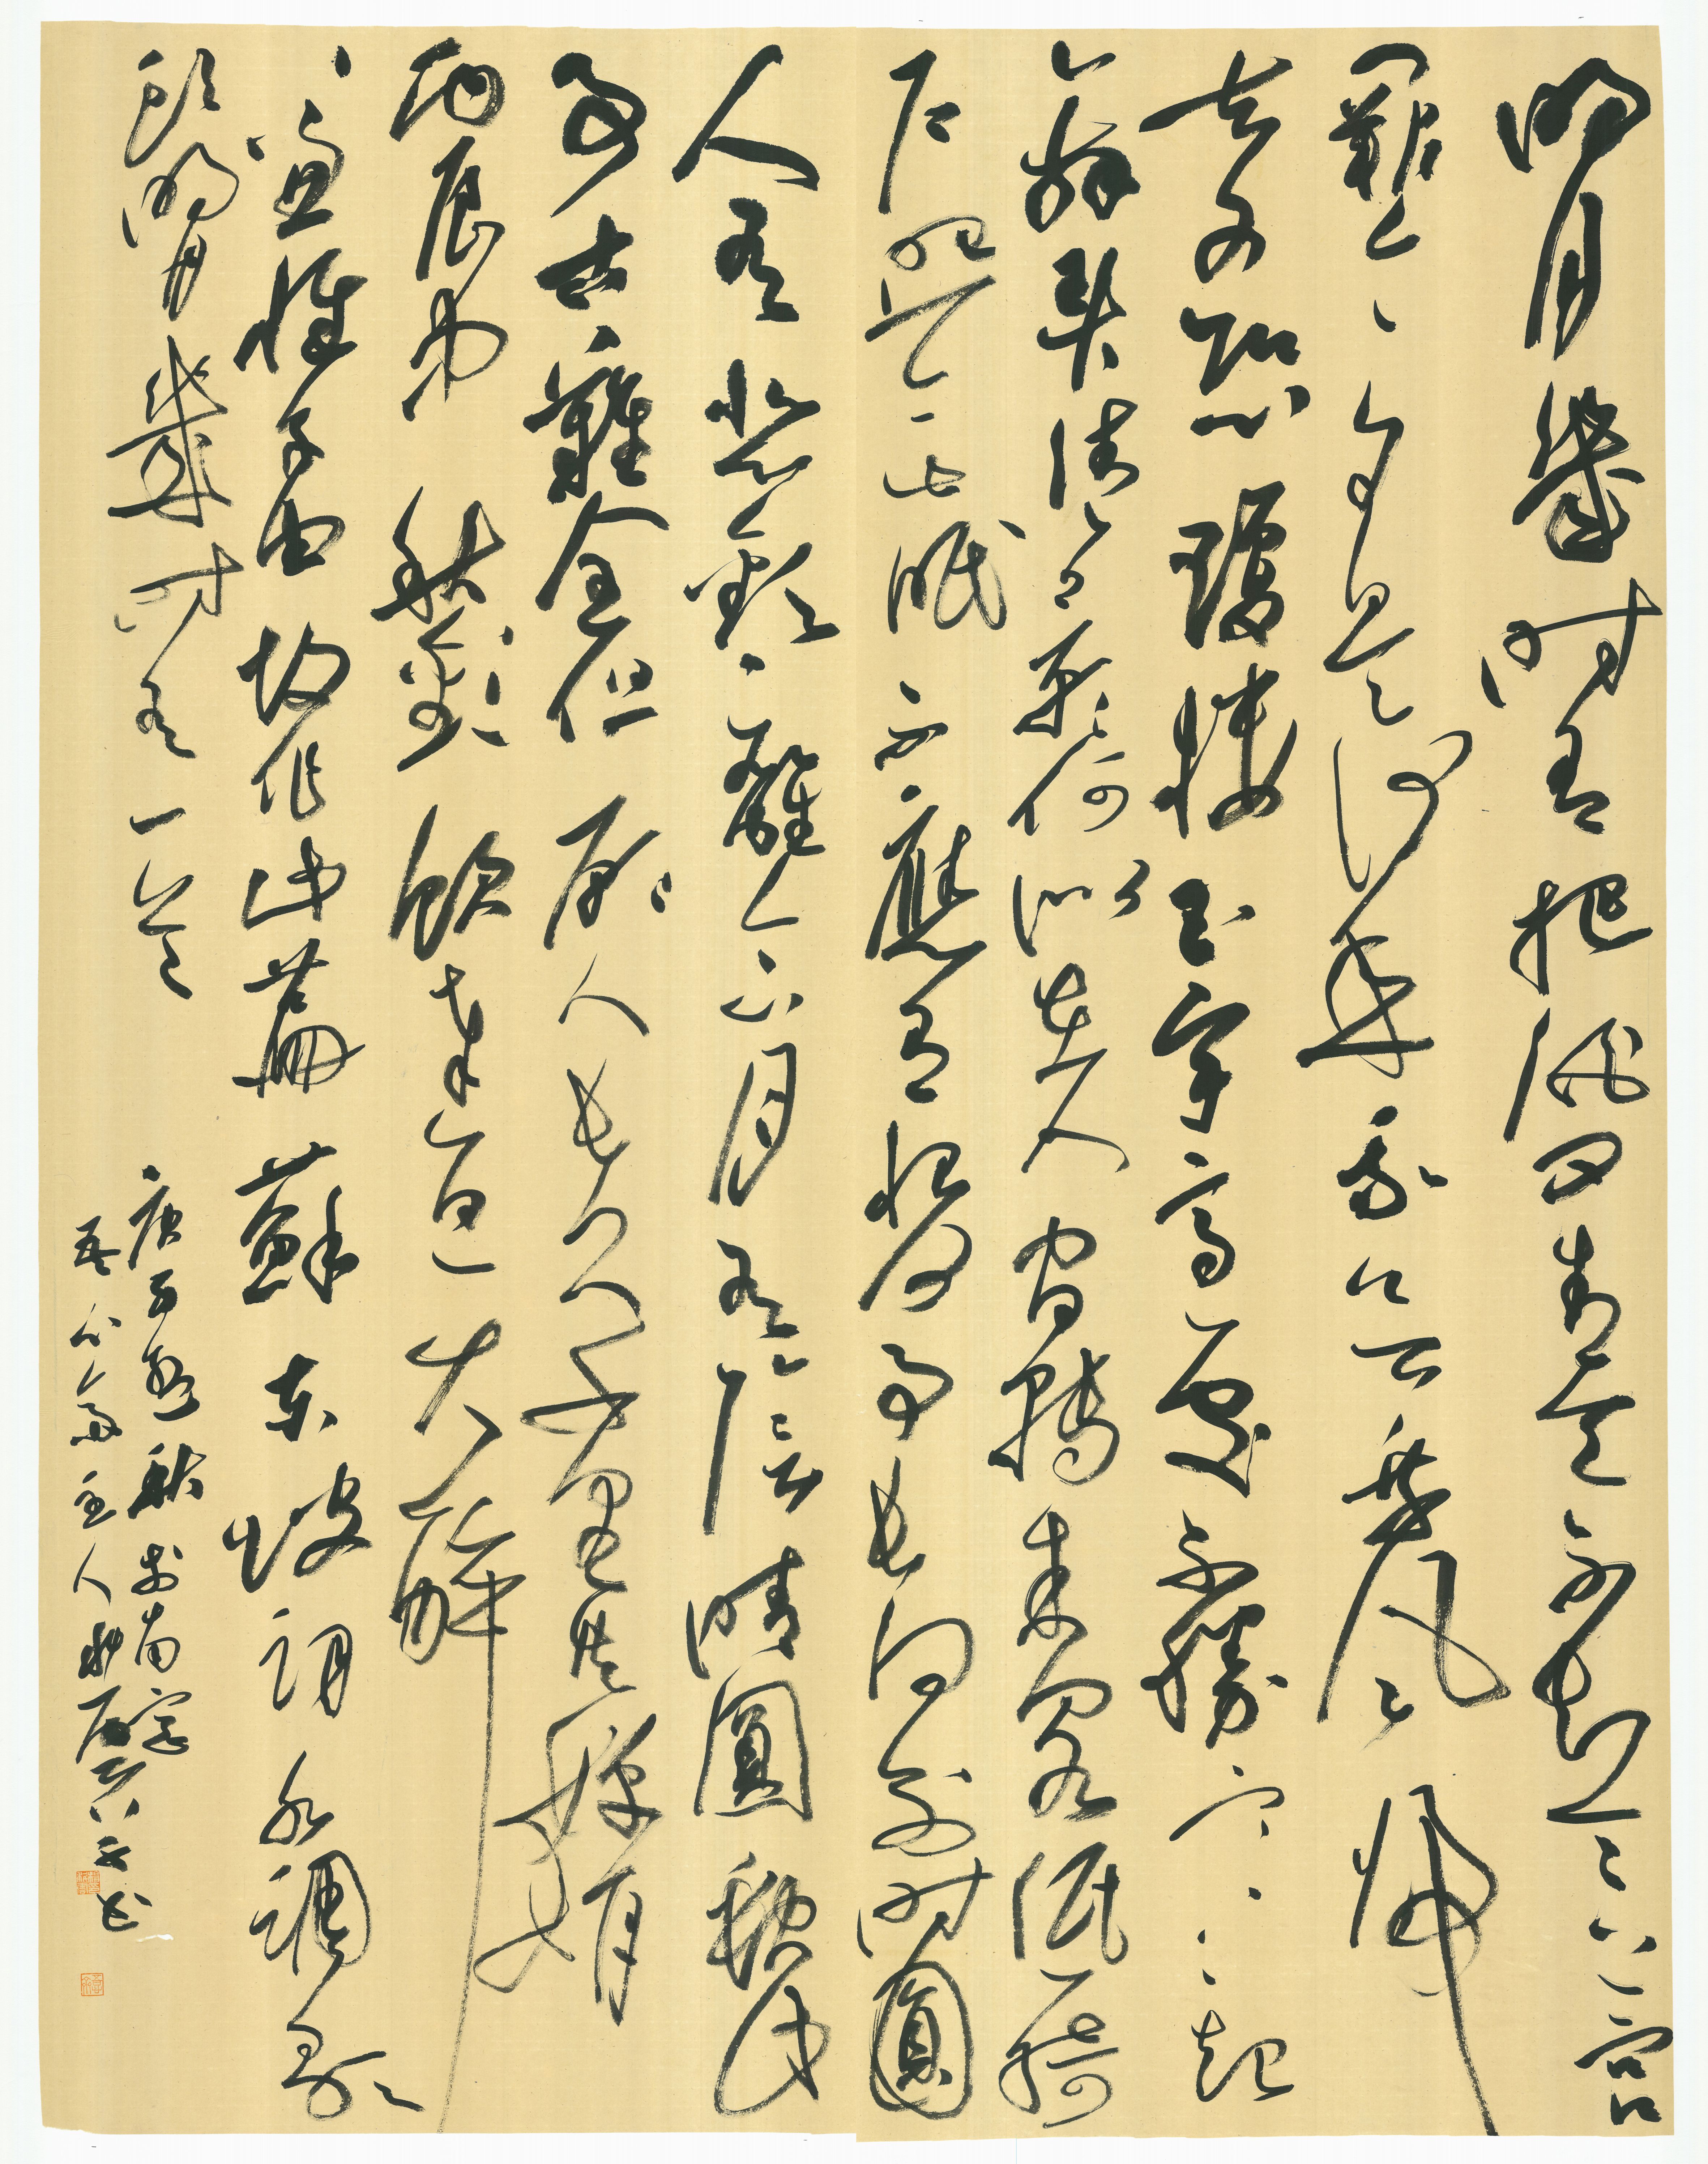 明月幾時有把酒問青天不知天上宮
闕今夕是何年我欲乘風歸
去又恐瓊樓玉宇高處不勝寒起
舞弄清影何似在人間轉朱閣低綺
戶照無眠不應有恨何事長向別時圓
人有悲歡離合月有陰晴圓缺此
事古難全但願人長久千里共嬋娟
丙辰中秋歡飲達旦大醉
作此篇兼懷子由 蘇東坡詞水調歌
頭明月幾時有一首
庚子
主人